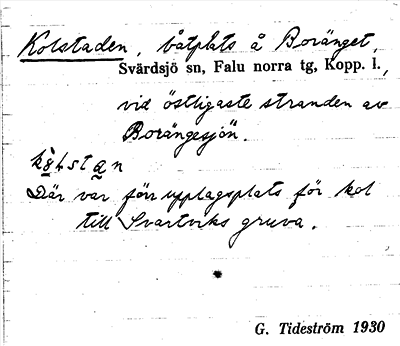 Kolstaden, båtplats å Boränget,
Svärdsjö sn, Falu norra tg, Kopp. l.,
vid östligaste stranden av
Borängesjön.
Där var förr upplagsplats för kol
till Svartviks gruva.
G. Tideström 1930